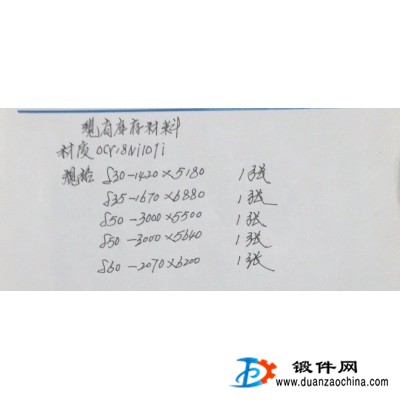 现有库存材料
材质0Cr18Ni10Ti
规格 δ30-1420×5180 1张
δ35-1670×6880 1张
δ50-3000×5500 1张
δ50-3000×5640 1张
δ60-2070×6200 1张
锻件网
www.duanzaochina.com